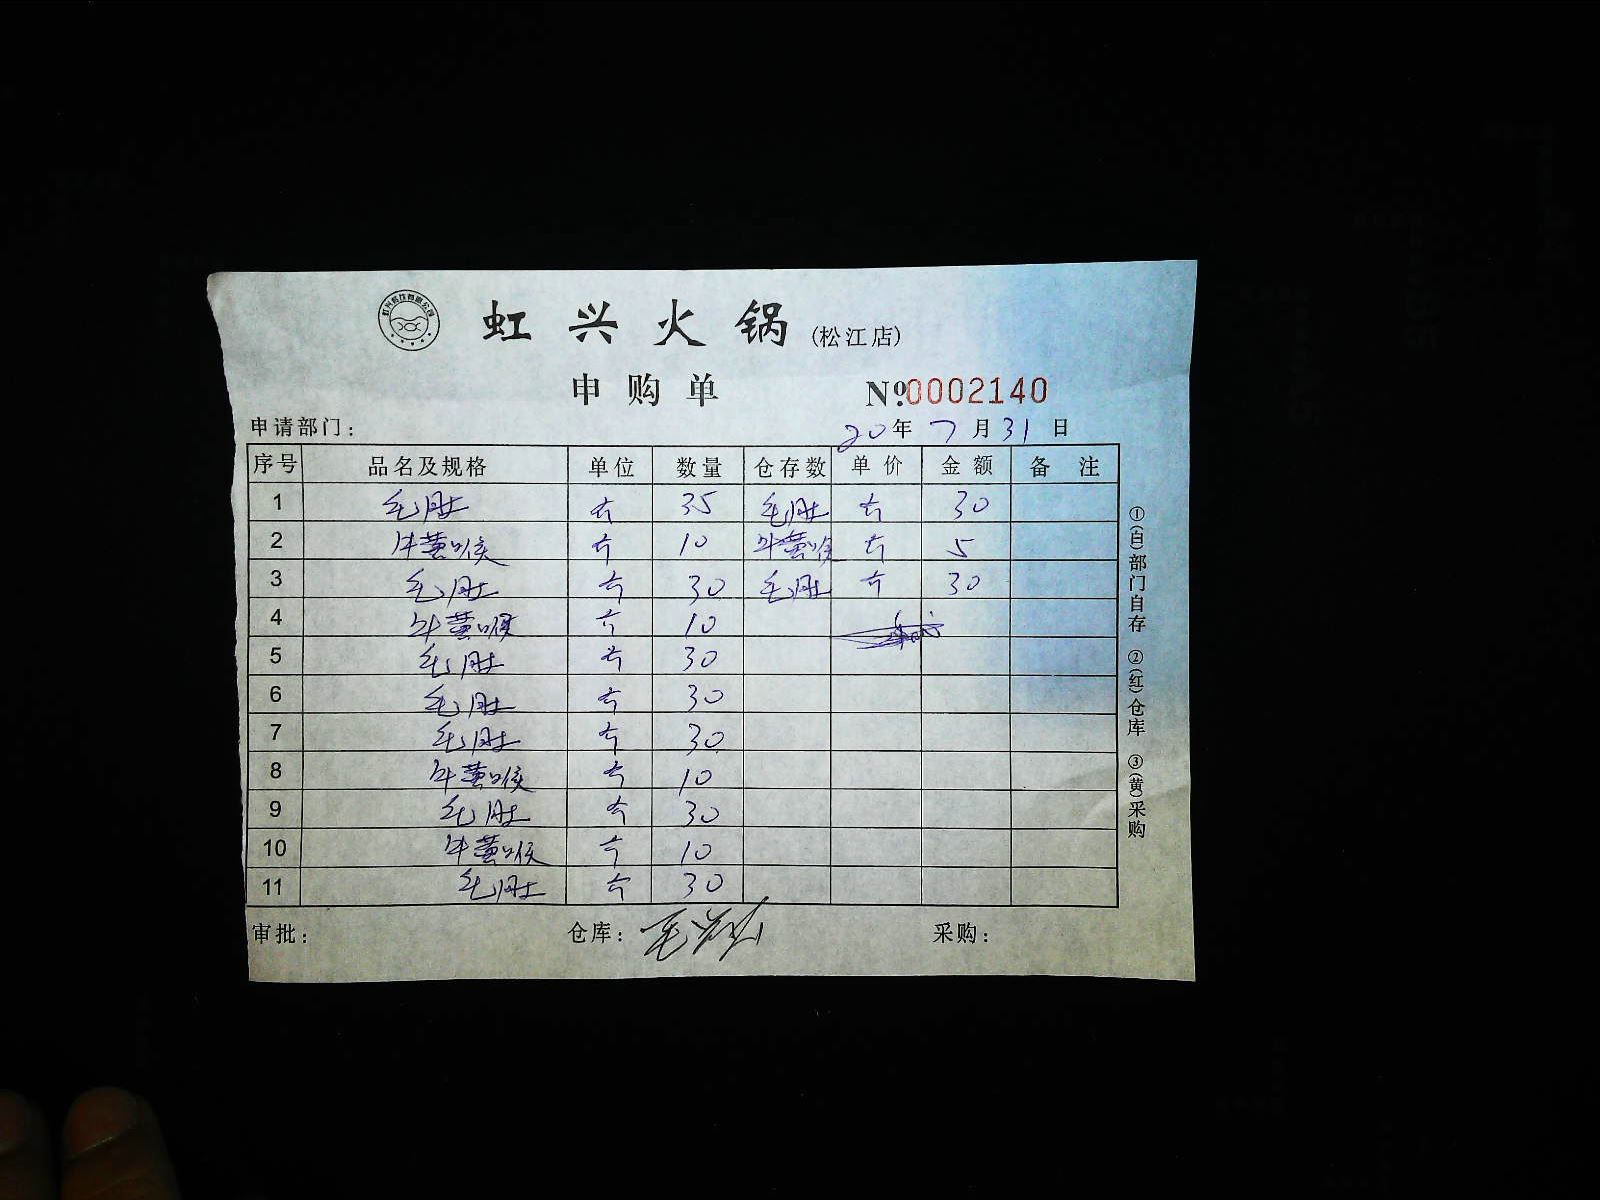 虹兴火锅 (松江店)
申购单 №0002140
申请部门： 20年 7月 31日
序号 品名及规格 单位 数量 仓存数 单价 金额 备注
1 毛肚 斤 35 毛肚 斤 30
2 牛黄喉 斤 10 牛黄喉 斤 5
3 毛肚 斤 30 毛肚 斤 30
4 牛黄喉 斤 10
5 毛肚 斤 30
6 毛肚 斤 30
7 毛肚 斤 30
8 牛黄喉 斤 10
9 毛肚 斤 30
10 牛黄喉 斤 10
11 毛肚 斤 30
审批： 仓库： 采购：
①(白)部门自存 ②(红)仓库 ③(黄)采购